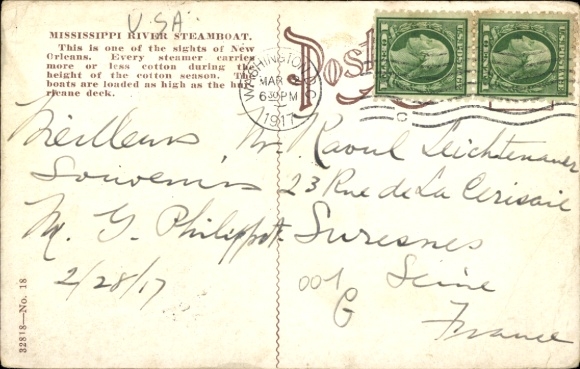 U.S.A.
MISSISSIPPI RIVER STEAMBOAT.
This is one of the sights of New
Orleans. Every steamer carries
more or less cotton during the
height of the cotton season. The
boats are loaded as high as the hur-
ricane deck.
Post
WASHINGTON, D.C.
MAR 2
630 PM
1917
U.S. POSTAGE
U.S. POSTAGE
Meilleurs
Souvenirs
M. G. Philippot
2/28/17
Mr Raoul Leichtenauer
23 Rue de La Cerisaie
Suresnes
Seine
France
001
G
32818—No. 18